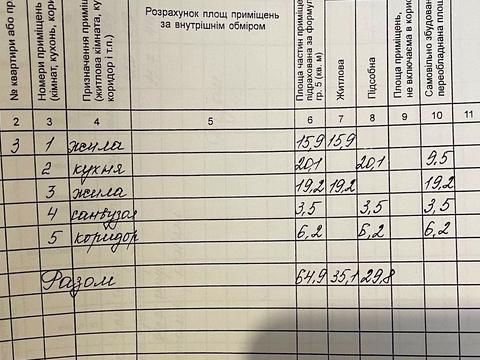 № квартири або пр
Номери приміщень
(кімнат, кухонь, кори
Призначення приміщ
(житлова кімната, ку
коридор і т.п.)
Розрахунок площ приміщень
за внутрішнім обміром
Площа частин приміще
підрахована за формул
гр. 5 (кв. м)
Житлова
Підсобна
Площа приміщення,
не включаєма в корис
Самовільно збудован
переобладнана площ
2 3 4 5 6 7 8 9 10 11
3 1 жила 15,9 15,9
2 кухня 20,1 20,1 9,5
3 жила 19,2 19,2 19,2
4 санвузол 3,5 3,5 3,5
5 коридор 6,2 6,2 6,2
Разом 64,9 35,1 29,8